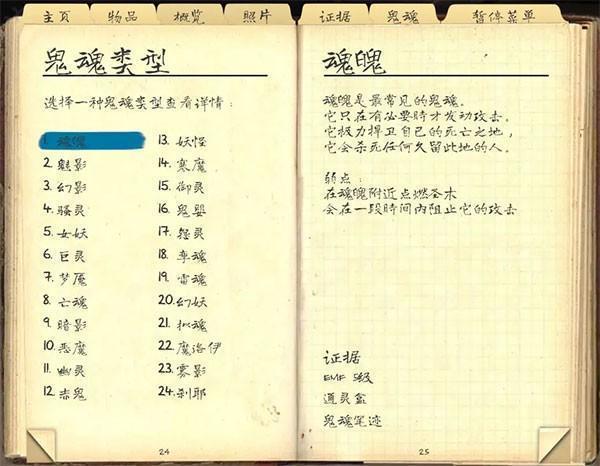 主页 物品 概览 照片 证据 鬼魂 暂停菜单
鬼魂类型
选择一种鬼魂类型查看详情：
1. 魂魄
2. 魅影
3. 幻影
4. 骚灵
5. 女妖
6. 巨灵
7. 梦魇
8. 亡魂
9. 暗影
10. 恶魔
11. 幽灵
12. 赤鬼
13. 妖怪
14. 寒魔
15. 御灵
16. 鬼婴
17. 怨灵
18. 孪魂
19. 雷魂
20. 幻妖
21. 拟魂
22. 魔洛伊
23. 雾影
24. 刹耶
24
魂魄
魂魄是最常见的鬼魂。
它只在有必要时才发动攻击。
它极力捍卫自己的死亡之地，
它会杀死任何久留此地的人。
弱点：
在魂魄附近点燃圣木
会在一段时间内阻止它的攻击
证据
EMF 5级
通灵盒
鬼魂笔迹
25